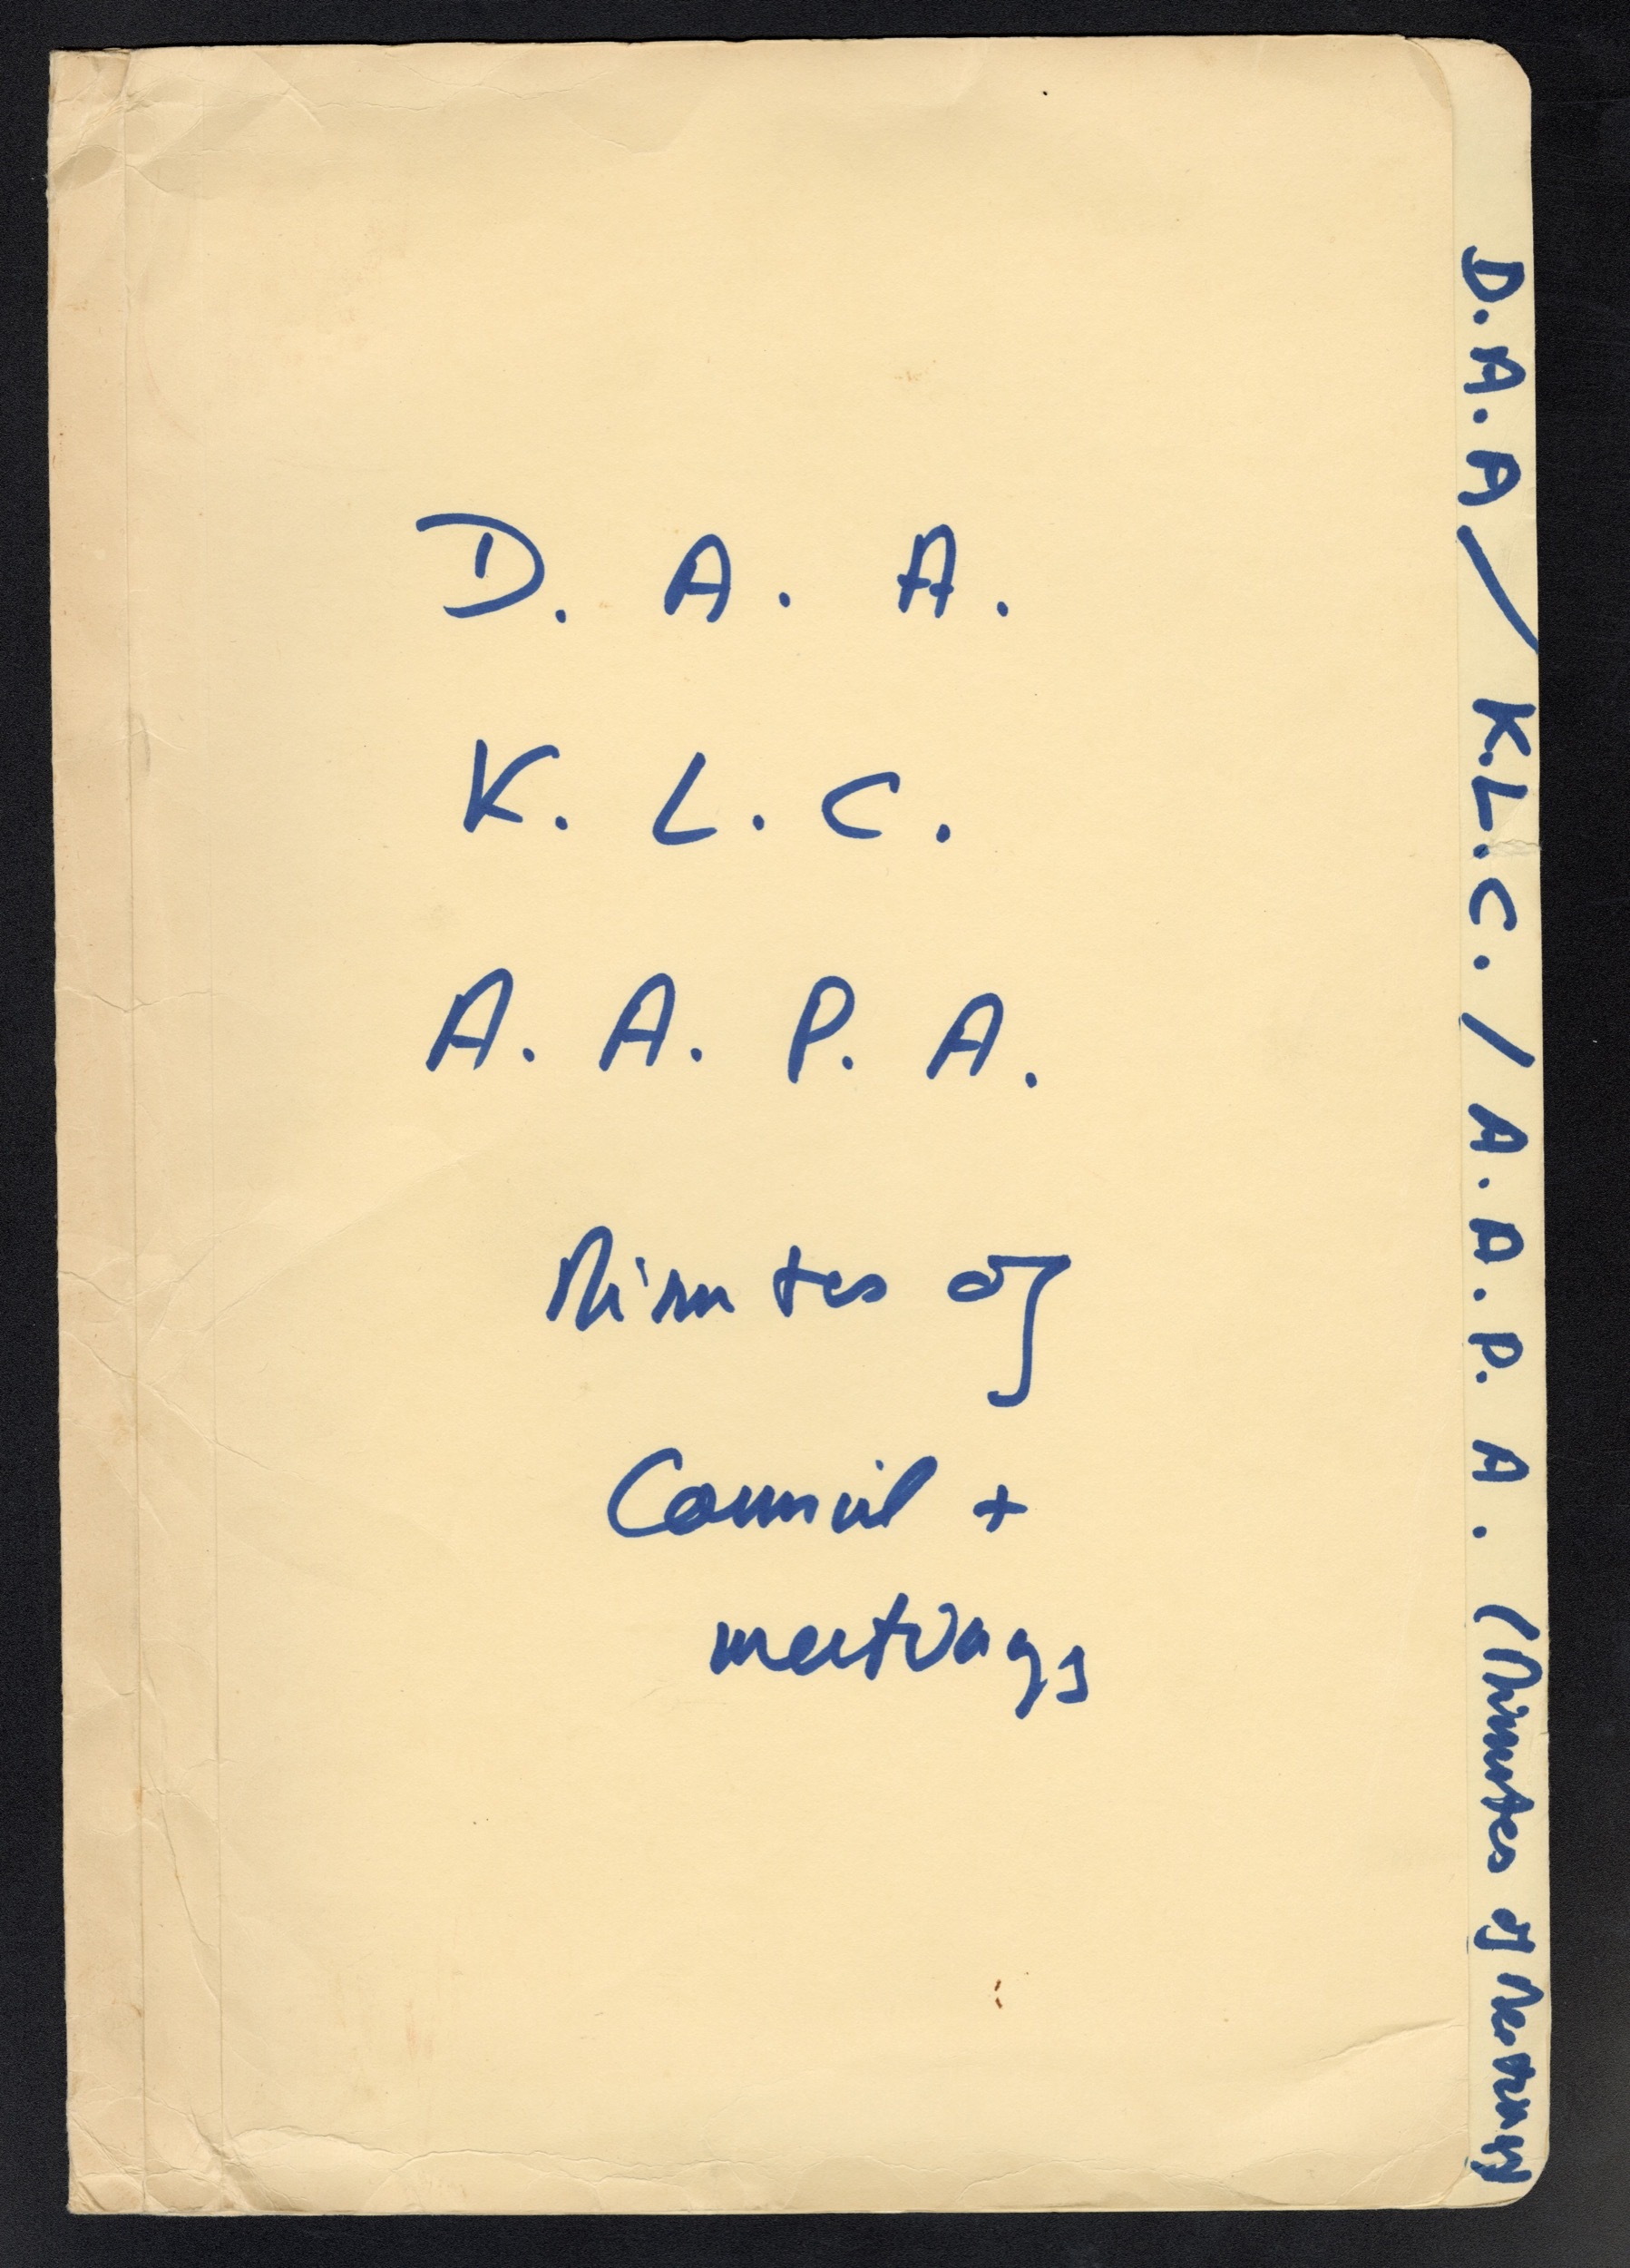 D. A. A.
K. L. C.
A. A. P. A.
Minutes of
Council +
meetings
D.A.A/ K.L.C. / A.A.P.A. (Minutes of Meetings)